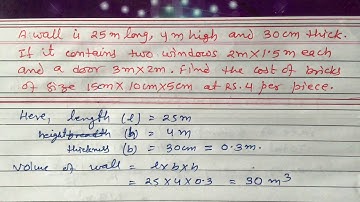 A wall is 25m long, 4m high and 30cm thick.
If it contains two windows 2m×1.5m each
and a door 3m×2m. Find the cost of bricks
of size 15cm×10cm×5cm at Rs.4 per piece.
Here, length (l) = 25m
height (h) = 4m
thickness (b) = 30cm = 0.3m.
Volume of wall = l×b×h
= 25×4×0.3 = 30 m³